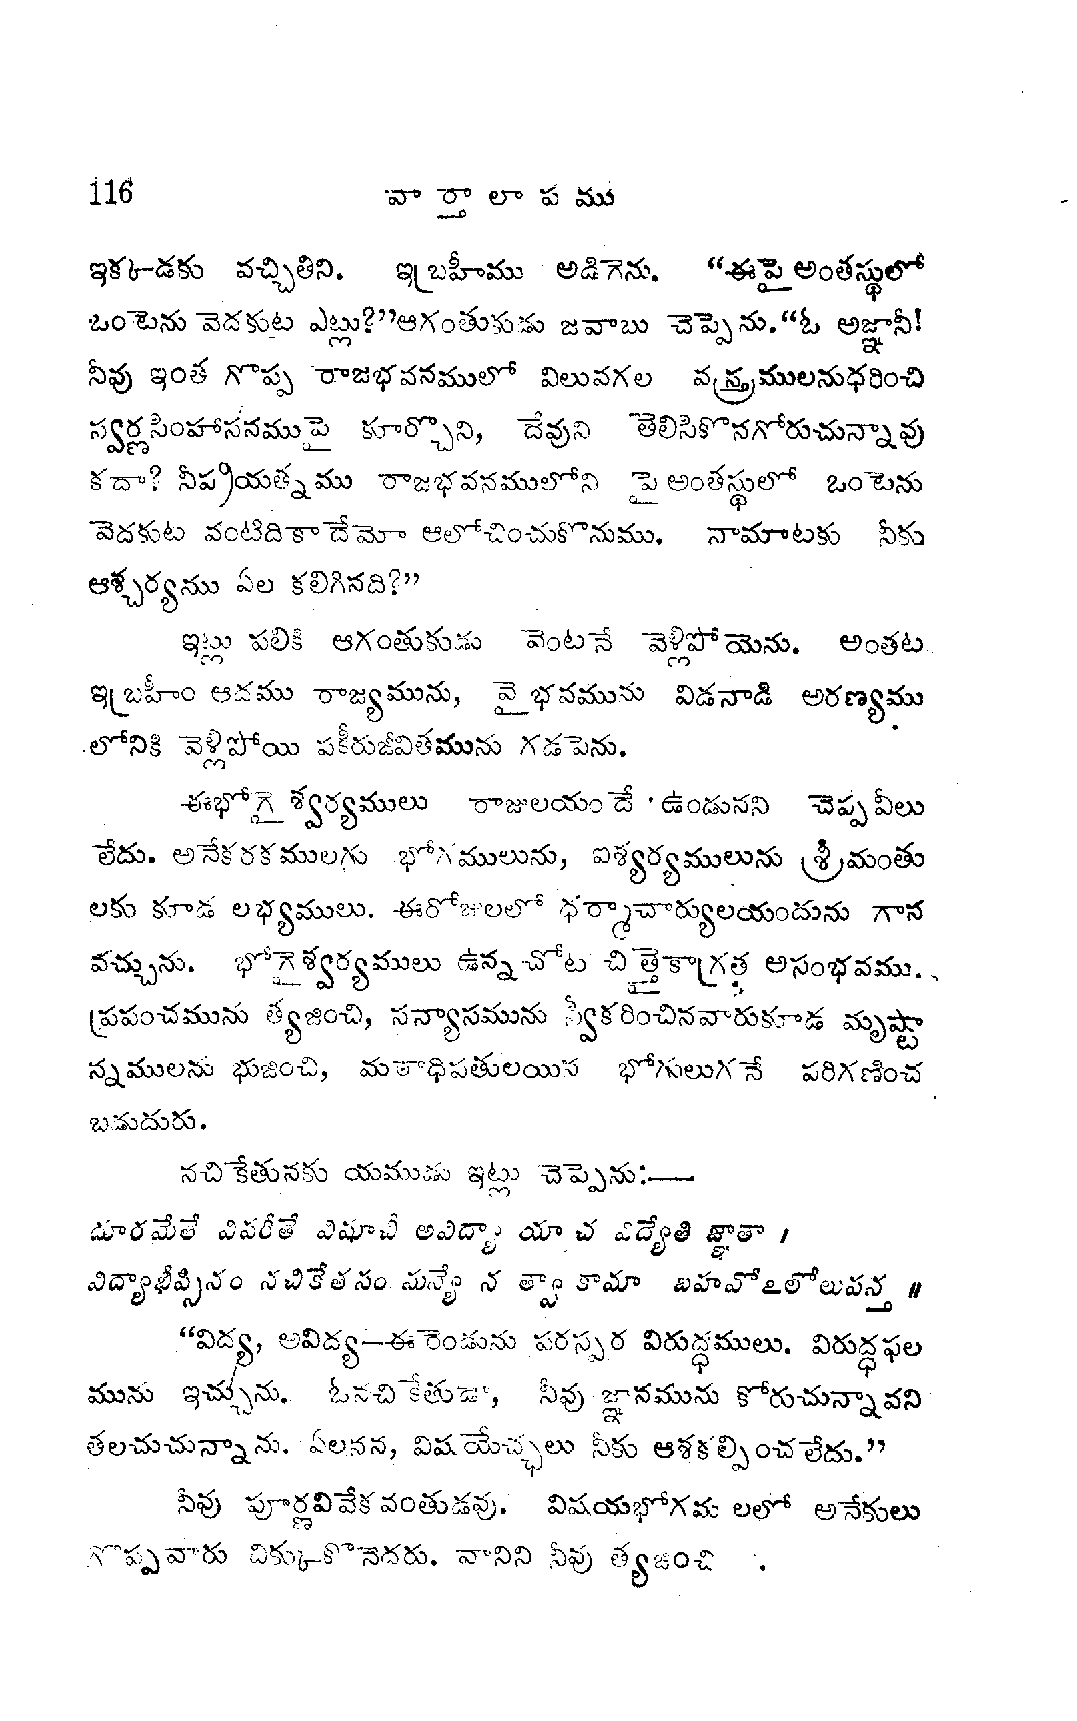 116 వార్తాలాపము
ఇక్కడకు వచ్చితిని. ఇబ్రహీము అడిగెను. “ఈపై అంతస్థులో
ఒంటెను వెదకుట ఎట్లు?”ఆగంతుకుడు జవాబు చెప్పెను.“ఓ అజ్ఞానీ!
నీవు ఇంత గొప్ప రాజభవనములో విలువగల వస్త్రములనుధరించి
స్వర్ణసింహాసనముపై కూర్చొని, దేవుని తెలిసికొనగోరుచున్నావు
కదా? నీప్రయత్నము రాజభవనములోని పై అంతస్థులో ఒంటెను
వెదకుట వంటిదికాదేమో ఆలోచించుకొనుము. నామాటకు నీకు
ఆశ్చర్యము ఏల కలిగినది?”
ఇట్లు పలికి ఆగంతుకుడు వెంటనే వెళ్లిపోయెను. అంతట
ఇబ్రహీం ఆదము రాజ్యమును, వైభవమును విడనాడి అరణ్యము
లోనికి వెళ్లిపోయి పకీరుజీవితమును గడపెను.
ఈభోగైశ్వర్యములు రాజులయందే ఉండునని చెప్పవీలు
లేదు. అనేకరకములగు భోగములును, ఐశ్వర్యములును శ్రీమంతు
లకు కూడ లభ్యములు. ఈరోజులలో ధర్మాచార్యులయందును గాన
వచ్చును. భోగైశ్వర్యములు ఉన్నచోట చిత్తైకాగ్రత్త అసంభవము.
ప్రపంచమును త్యజించి, సన్యాసమును స్వీకరించినవారుకూడ మృష్టా
న్నములను భుజించి, మఠాధిపతులయిన భోగులుగనే పరిగణించ
బడుదురు.
నచికేతునకు యముడు ఇట్లు చెప్పెను:—
దూరమేతే విపరీతే విషూచీ అవిద్యా యా చ విద్యేతి జ్ఞాతా ।
విద్యాభీప్సినం నచికేతసం మన్యే న త్వా కామా బహవోఽలోలుపన్త ॥
“విద్య, అవిద్య—ఈ రెండును పరస్పర విరుద్ధములు. విరుద్ధఫల
మును ఇచ్చును. ఓనచికేతుడా, నీవు జ్ఞానమును కోరుచున్నావని
తలచుచున్నాను. ఏలనన, విషయేచ్ఛలు నీకు ఆశకల్పించలేదు.”
నీవు పూర్ణవివేకవంతుడవు. విషయభోగములలో అనేకులు
గొప్పవారు చిక్కుకొనెదరు. వానిని నీవు త్యజించి .